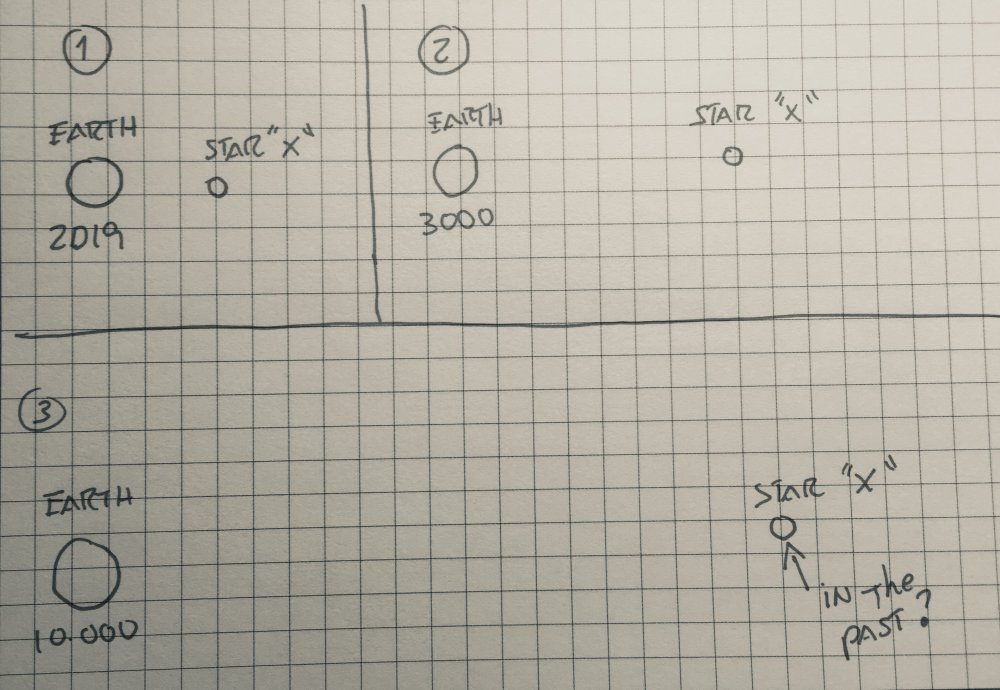 1
EARTH
STAR "X"
2019
2
EARTH
STAR "X"
3000
3
EARTH
10.000
STAR "X"
IN The
PAST?